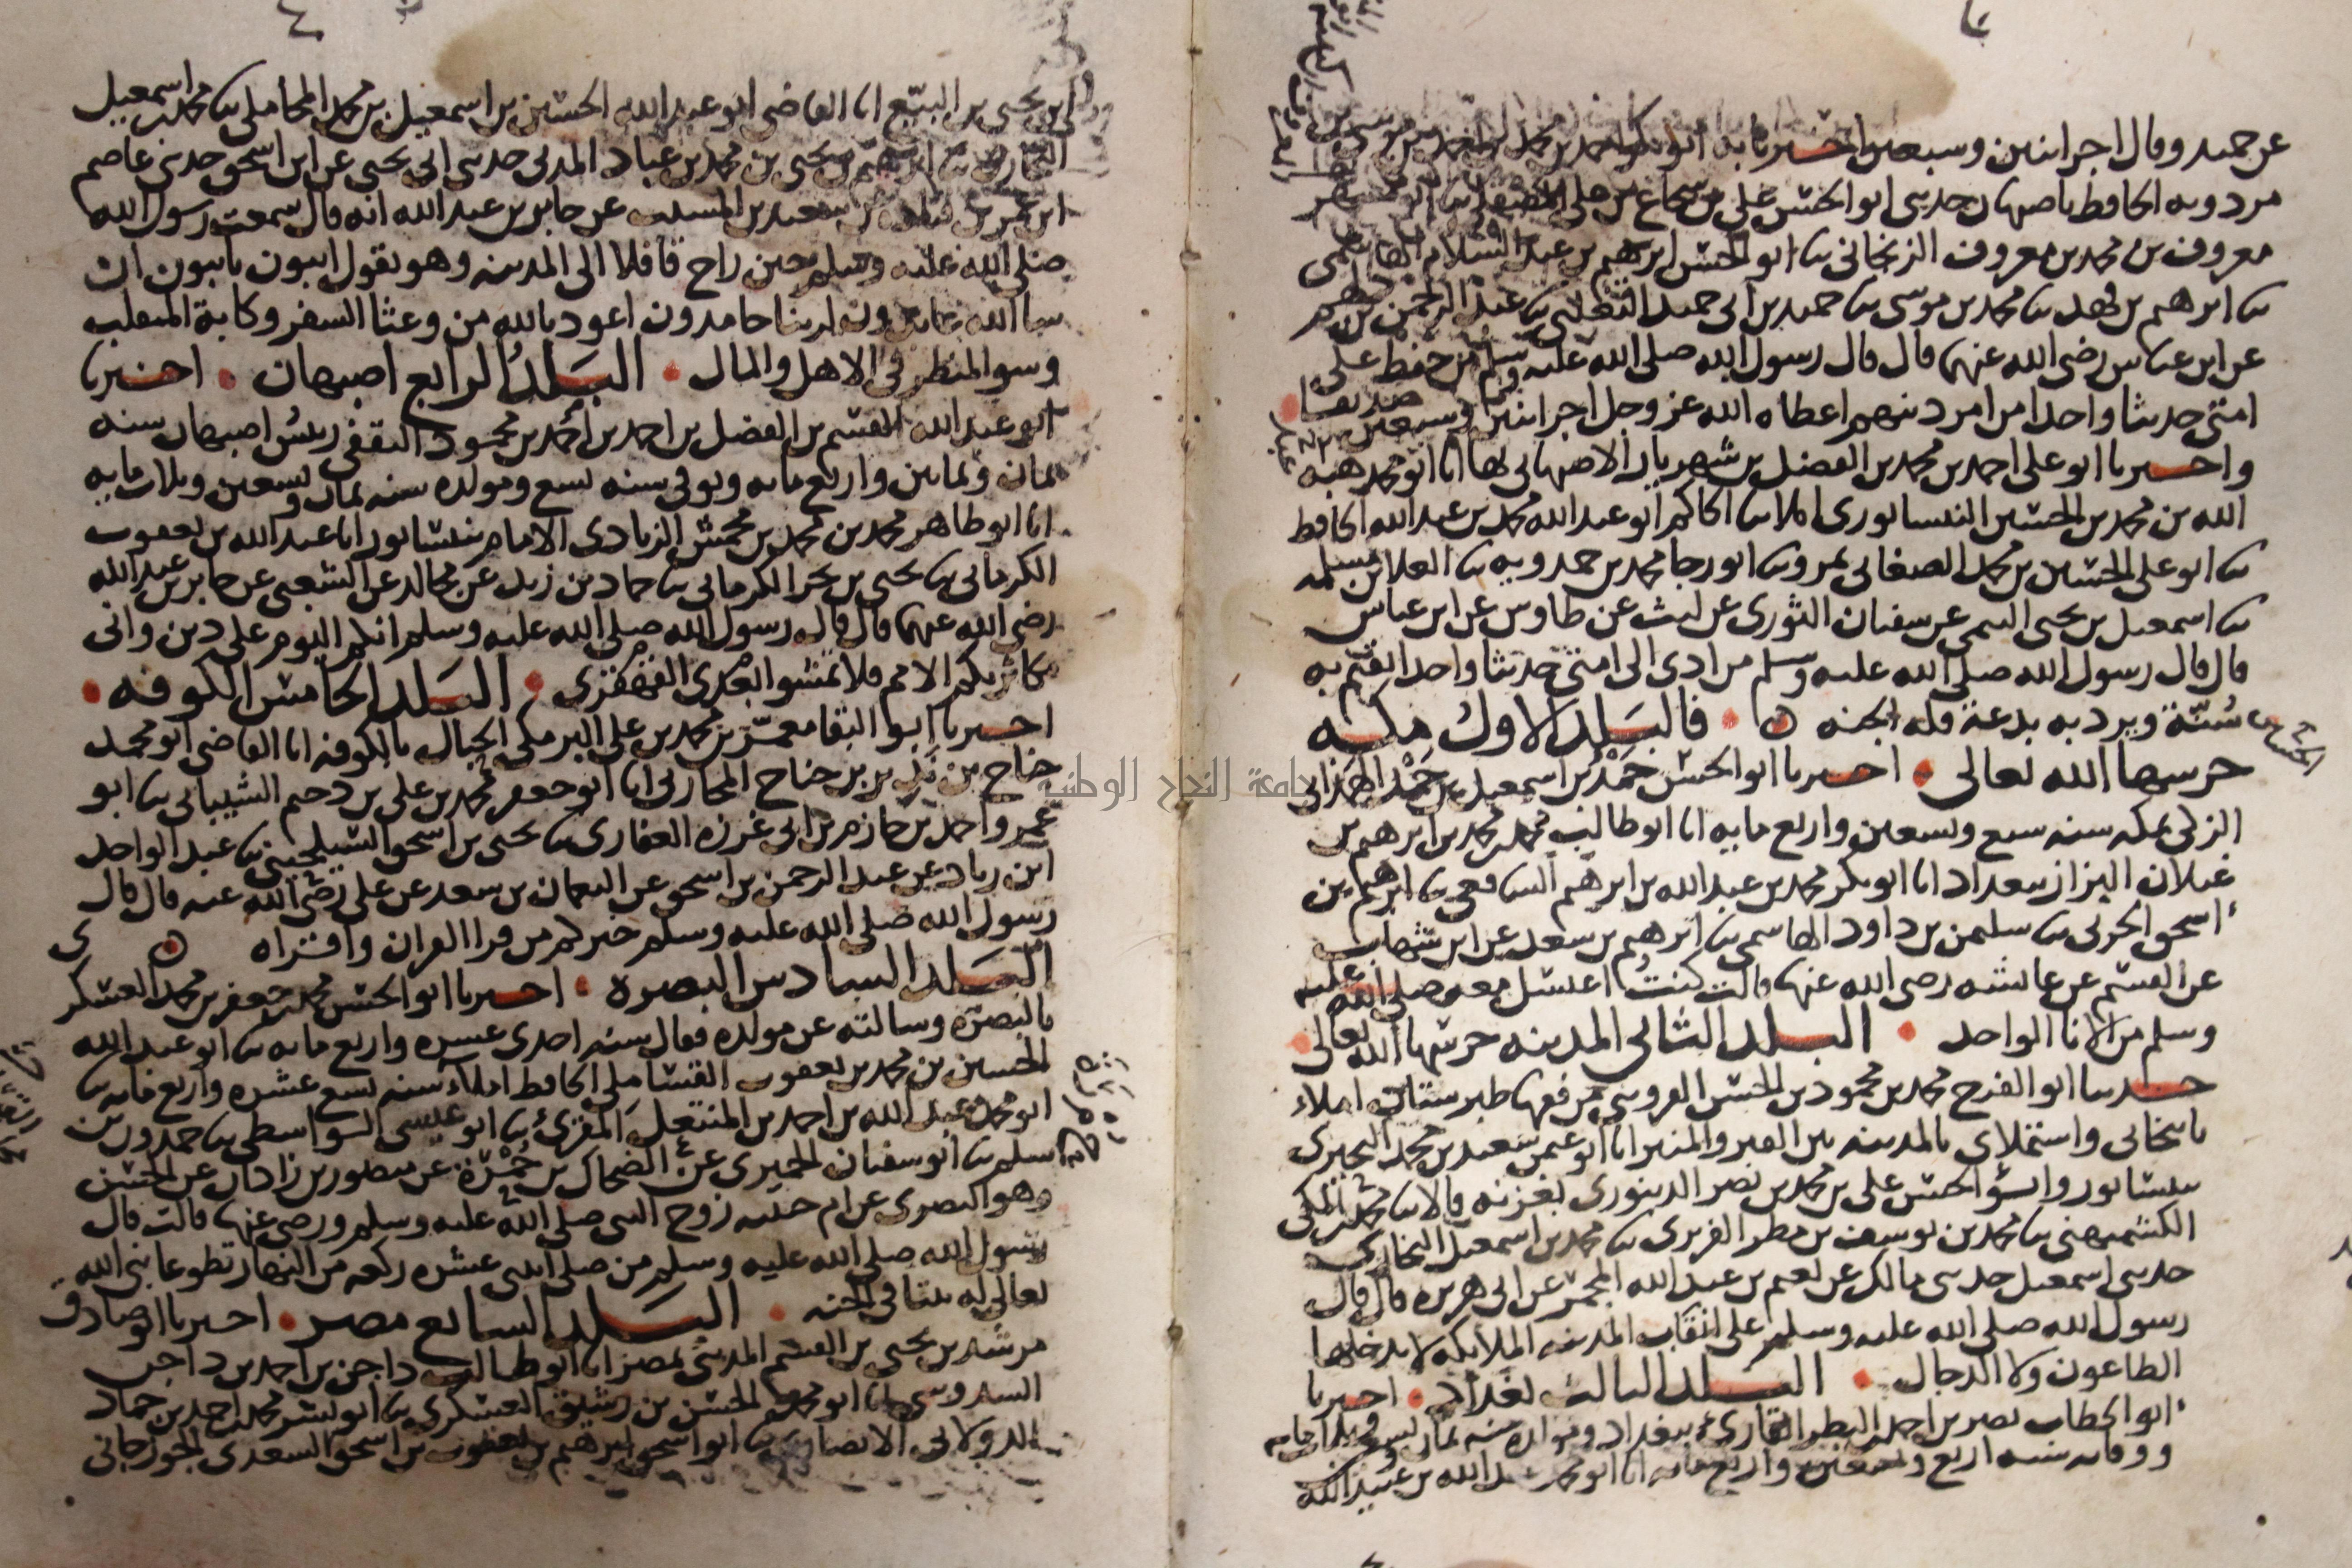 عن حميد وقال اجر اثنين وسبعين اخبرنا به ابو بكر احمد بن محمد بن احمد بن موسى بن
مردويه الحافظ باصبهان حدثني ابو الحسن علي بن شجاع بن علي المصقلي ثنا ابو
معروف بن محمد بن معروف الزنجاني ثنا ابو الحسن ابرهيم بن عبد السلام الهاشمي
ثنا ابرهيم بن فهد ثنا محمد بن موسى ثنا حميد بن ابي حميد ثنا عبد الرحمن بن
عن ابن عباس رضي الله عنهما قال قال رسول الله صلى الله عليه وسلم من حفظ على
امتي حديثا واحدا من امر دينهم اعطاه الله عز وجل اجر اثنين وسبعين صديقا
واخبرنا ابو علي احمد بن محمد بن الفضل بن شهريار الاصبهاني بها انا ابو محمد هبة
الله بن محمد بن الحسين النيسابوري املا ثنا الحاكم ابو عبد الله محمد بن عبد الله الحافظ
ثنا ابو علي الحسين بن محمد الصغاني بمرو ثنا ابو رجا محمد بن حمدويه ثنا العلا بن مسلمه
ثنا اسمعيل بن يحيى التيمي عن سفيان الثوري عن ليث عن طاوس عن ابن عباس
قال قال رسول الله صلى الله عليه وسلم من ادى الى امتي حديثا واحدا يقيم به
سُنّة ويرد به بدعة فله الجنه ۞ فالبَلد الاول مكه
حرسها الله تعالى احبرنا ابو الحسن حَمْد بن اسمعيل بن حَمْد الهمذاني
الزكي بمكه سنه سبع وتسعين واربع مايه انا ابو طالب محمد بن محمد بن ابرهيم بن
غيلان البزاز ببغداد انا ابو بكر محمد بن عبد الله بن ابرهيم الشافعي ثنا ابرهيم بن
اسحق الحربي ثنا سليمن بن داود الهاشمي ثنا ابرهيم بن سعد عن ابن شهاب
عن القسم عن عائشه رضي الله عنها قالت كنتُ اغتسل معه صلى الله عليه
وسلم من الانا الواحد البلد الثاني المدينه حرسها الله تعالى
حدثنا ابو الفرج محمد بن محمود بن الحسن القزويني من فقها طبرستان املاء
بانتخابي واستملاي بالمدينه بين القبر والمنبر انا ابو عمر سعيد بن محمد البحيري
بنيسابور وابو الحسن علي بن محمد بن نصر الدينوري بغزنه قالا ثنا محمد بن المكي
الكشميهني ثنا محمد بن يوسف بن مطر الفربري ثنا محمد بن اسمعيل البخاري
حدثني اسمعيل حدثني مالك عن نعيم بن عبد الله المجمر عن ابي هريره قال قال
رسول الله صلى الله عليه وسلم على انقاب المدينه الملايكه لا يدخلها
الطاعون ولا الدجال البَلد الثالث بغداد احبرنا
ابو الخطاب نصر بن احمد بن البطر القاري ببغداد ومولده سنه ثمان وتسعين وثلاثمايه
ووفاته سنه اربع وتسعين واربع مايه انا ابو محمد عبد الله بن عبيد الله
ابن يحيى بن البيّع انا القاضي ابو عبد الله الحسين بن اسمعيل بن محمد المحاملي ثنا محمد بن اسمعيل
البخاري ثنا ابرهيم بن يحيى بن محمد بن عباد المدني حدثني ابي يحيى عن ابن اسحق حدثني عاصم
ابن عمر بن قتاده عن سعيد بن المسيب عن جابر بن عبد الله انه قال سمعت رسول الله
صلى الله عليه وسلم حين راح قافلا الى المدينه وهو يقول ايبون تايبون ان
شا الله عابدون لربنا حامدون اعوذ بالله من وعثا السفر وكابة المنقلب
وسو المنظر في الاهل والمال البَلدُ الرابع اصبهان احبرنا
ابو عبد الله القسم بن الفضل بن احمد بن احمد بن محمود الثقفي رييس اصبهان سنه
ثمان وثمانين واربع مايه وتوفي سنه تسع ومولده سنه ثمان وتسعين وثلاث مايه
انا ابو طاهر محمد بن محمد بن محمش الزيادي الامام بنيسابور انا عبد الله بن يعقوب
الكرماني ثنا يحيى بن بحر الكرماني ثنا حماد بن زيد عن مجالد عن الشعبي عن جابر بن عبد الله
رضي الله عنهما قال قال رسول الله صلى الله عليه وسلم انكم اليوم على دين واني
مكاثر بكم الامم فلا تمشوا بعدي القهقرى البَلد الخامس الكوفه
احبرنا ابو البقا معمّر بن محمد بن علي البرمكي الحبال بالكوفه انا القاضي ابو محمد
جناح بن نذير بن جناح المحاربي انا ابو جعفر محمد بن علي بن دحيم الشيباني ثنا ابو
عمرو احمد بن حازم بن ابي غرزه الغفاري ثنا يحيى بن اسحق السيلحيني ثنا عبد الواحد
ابن زياد عن عبد الرحمن بن اسحق عن النعمان بن سعد عن علي رضي الله عنه قال قال
رسول الله صلى الله عليه وسلم خيركم من قرا القران واقراه ۞
البَلد السادس البصره احبرنا ابو الحسن محمد بن جعفر بن محمد العسكري
بالبصره وسالته عن مولده فقال سنه احدى عشره واربع مايه ثنا ابو عبد الله
الحسين بن محمد بن يعقوب القساملي الحافظ املاء سنه تسع عشره واربع مايه ثنا
ابو محمد عبد الله بن احمد بن المقرئ ثنا ابو عيسى الواسطي ثنا حمدون بن
سلم ثنا ابو سفيان الحميري عن الضحاك بن حُمْرَة عن منصور بن زاذان عن الحسن
وهو البصري عن ام حبيبه زوج النبي صلى الله عليه وسلم ورضي عنها قالت قال
رسول الله صلى الله عليه وسلم من صلى اثنتي عشره ركعه من النهار تطوعا بنى الله
تعالى له بيتا في الجنه البَلد السابع مصر احبرنا ابو صادق
مرشد بن يحيى بن القسم المديني بمصر انا ابو طالب داجن بن احمد بن داجن
السدوسي انا ابو محمد الحسن بن رشيق العسكري ثنا ابو بشر محمد بن احمد بن حماد
الدولابي الانصاري ثنا ابو اسحق ابرهيم بن يعقوب بن اسحق السعدي الجوزجاني
جامعة النجاح الوطنية